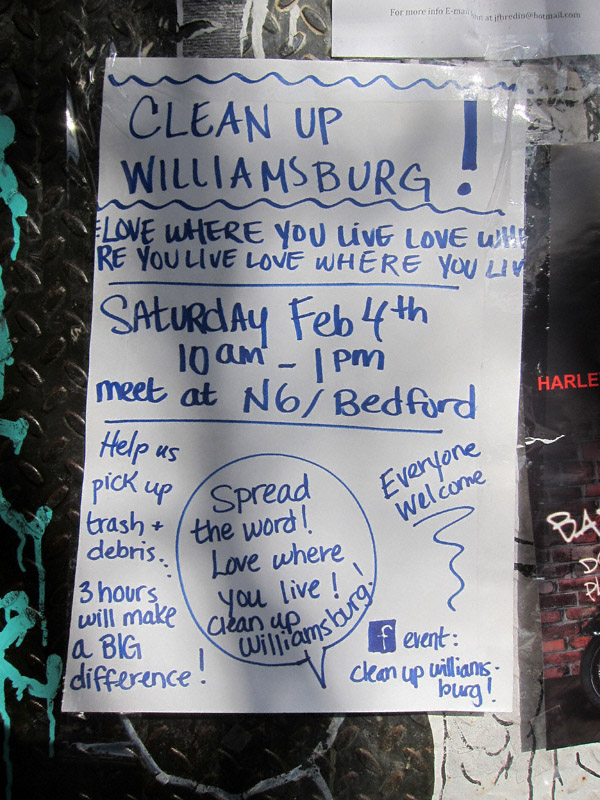 For more info E-mail at jfbredin@hotmail.com
CLEAN UP
WILLIAMSBURG!
LOVE WHERE YOU LIVE LOVE WHE
RE YOU LIVE LOVE WHERE YOU LIV
SATURDAY Feb 4th
10am - 1pm
meet at N6/Bedford
Help us
pick up
trash +
debris..
3 hours
will make
a BIG
difference!
Spread
the word!
Love where
you live!
clean up
williamsburg!
Everyone
Welcome
f event:
clean up williams-
burg!
HARLE
BA